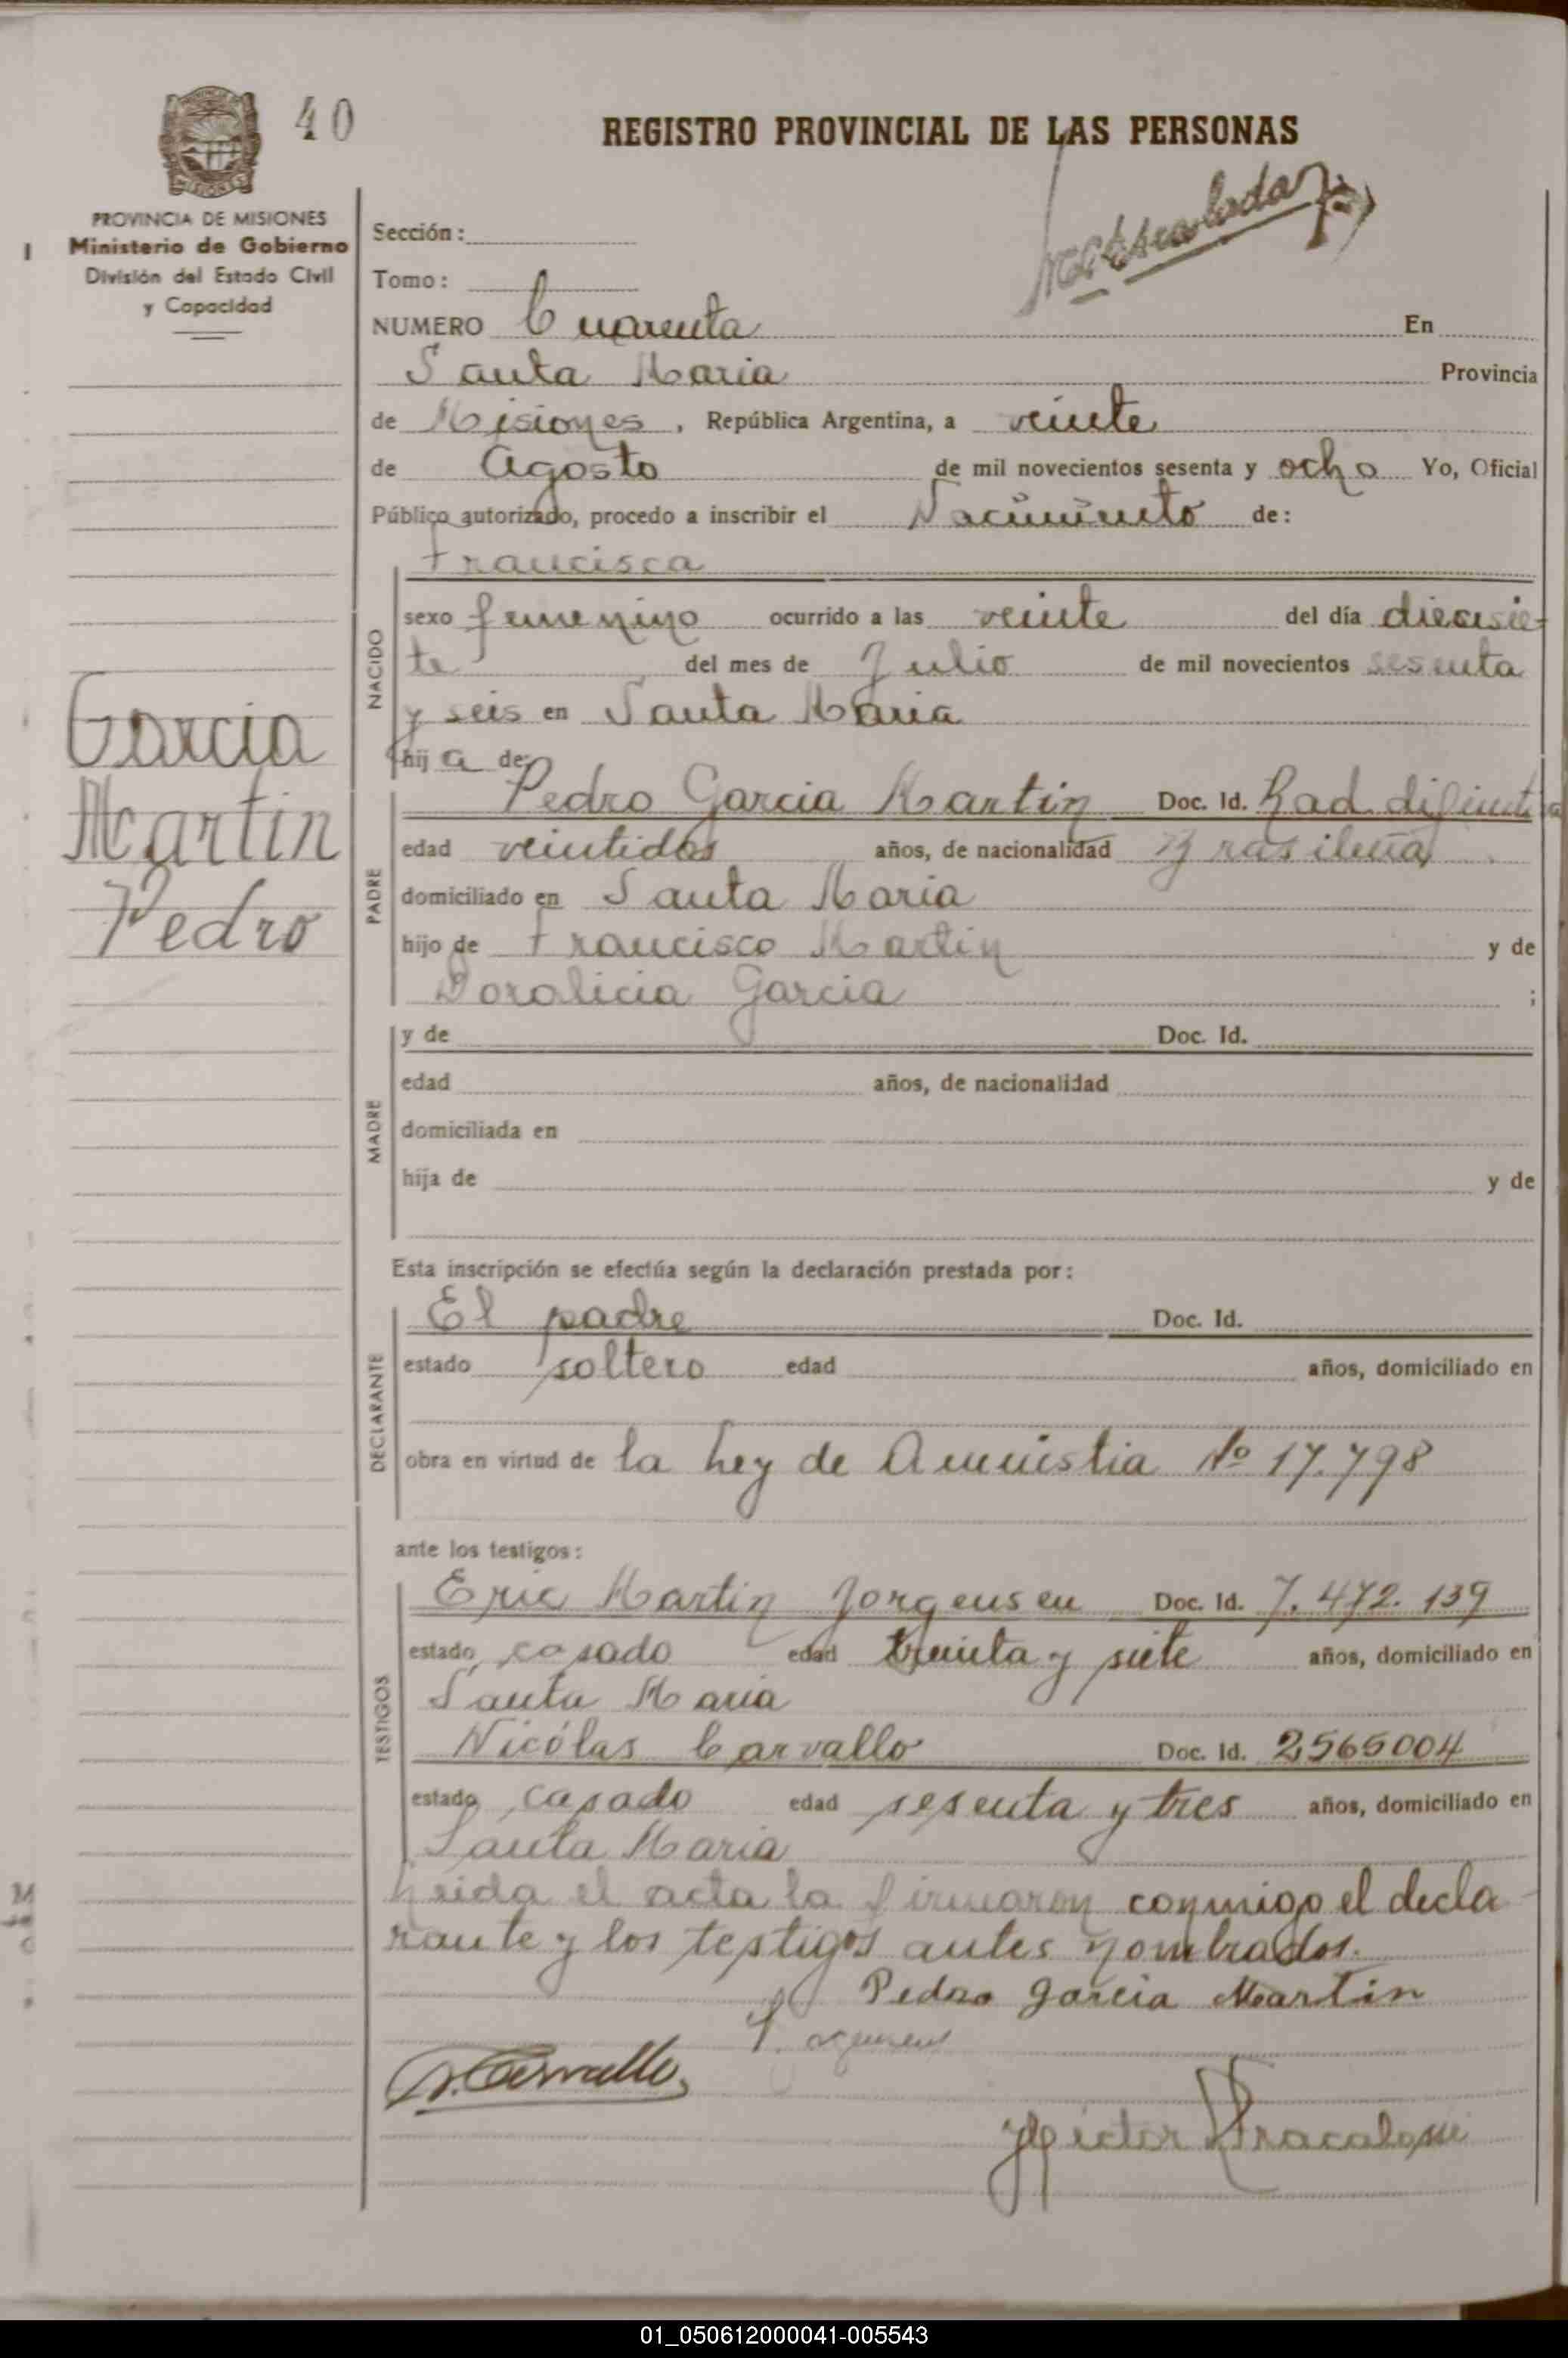 40
REGISTRO PROVINCIAL DE LAS PERSONAS
PROVINCIA DE MISIONES
Ministerio de Gobierno
División del Estado Civil
y Capacidad
Sección:
Tomo:
NUMERO Cuarenta En
Santa Maria Provincia
de Misiones, República Argentina, a veinte
de Agosto de mil novecientos sesenta y ocho Yo, Oficial
Público autorizado, procedo a inscribir el Nacimiento de:
NACIDO
Francisca
sexo femenino ocurrido a las veinte del día diecisie-
te del mes de Julio de mil novecientos sesenta
y seis en Santa Maria
hija de:
Garcia
Martin
Pedro
PADRE
Pedro Garcia Martin Doc. Id. Rad. difinitiva
edad veintidos años, de nacionalidad Brasileña
domiciliado en Santa Maria
hijo de Francisco Martin y de
Doralicia Garcia ;
MADRE
y de Doc. Id.
edad años, de nacionalidad
domiciliada en
hija de y de
Esta inscripción se efectúa según la declaración prestada por:
DECLARANTE
El padre Doc. Id.
estado soltero edad años, domiciliado en
obra en virtud de la Ley de Amnistia Nº 17.798
ante los testigos:
TESTIGOS
Eric Martin Jorgensen Doc. Id. 7.472.139
estado casado edad treinta y siete años, domiciliado en
Santa Maria
Nicólas Carvallo Doc. Id. 2565004
estado casado edad sesenta y tres años, domiciliado en
Santa Maria
Leida el acta la firmaron conmigo el decla-
rante y los testigos antes nombrados.
Pedro Garcia Martin
N. Carvallo
Hector
01_050612000041-005543